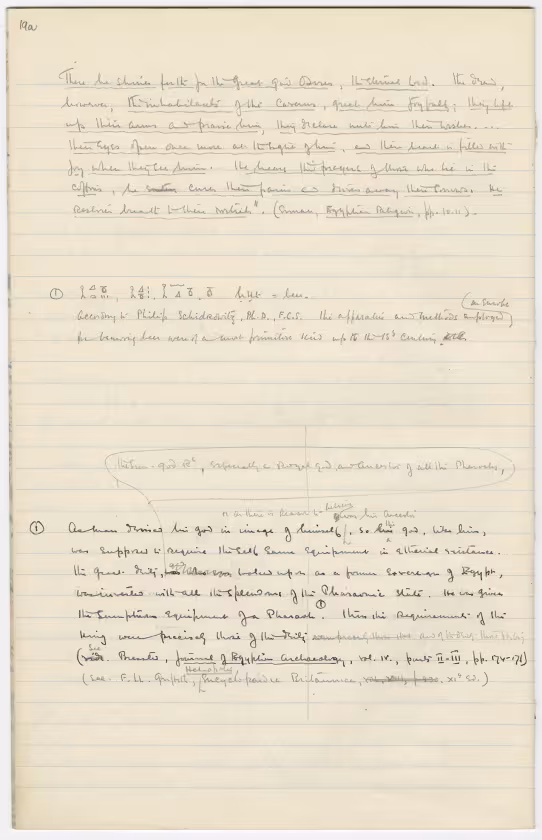 19a
There he shines forth for the great god Osiris, the eternal lord. The dead,
however, the inhabitants of the caverns, greet him joyfully; they lift
up their arms and praise him, they declare unto him their wishes....
Their eyes open once more at the sight of him, and their heart is filled with
joy when they see him. He hears the prayers of those who lie in the
coffins, he cures their pains and drives away their sorrows. He
restores breath to their nostrils". (Erman, Egyptian Religion, pp. 10.11).
① = beer.
According to Philip Schidrowitz, Ph.D., F.C.S. the apparatus and methods employed
for brewing beer were of a most primitive kind up to the 18th century
the sun-god Rē, especially a royal god, and ancestor of all the Pharaohs,
① As man devised his god in image of himself, so his god, like him,
was supposed to require the self same equipment in ethereal existence.
The great deity, looked upon as a former sovereign of Egypt,
was invested with all the splendour of the Pharaonic state. He was given
the sumptuous equipment of a Pharaoh. ① Thus the requirements of the
king were precisely those of the deity
(See Breasted, Journal of Egyptian Archaeology, vol. IV., parts II-III, pp. 174-176)
(See. F. Ll. Griffith, Encyclopaedia Britannica, XIth Ed.)